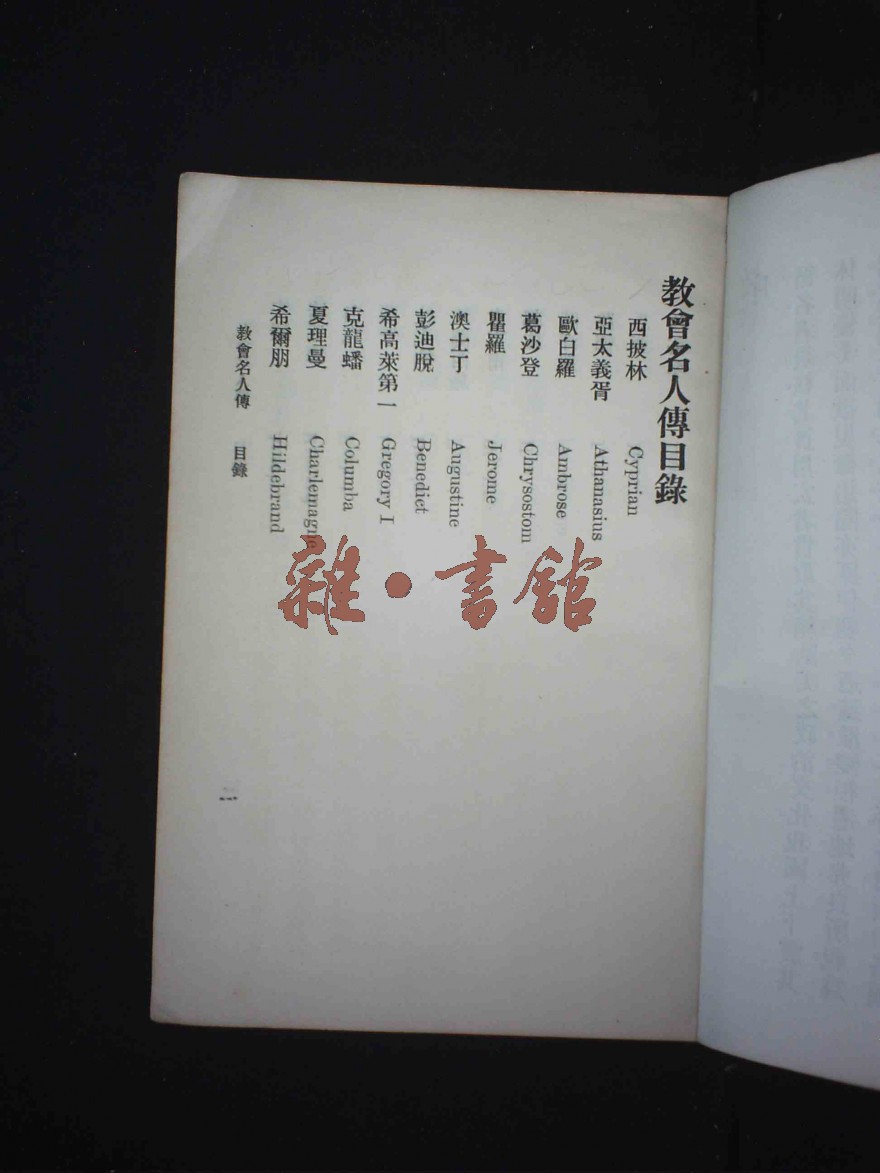 教會名人傳目錄
西披林 Cyprian
亞太義胥 Athanasius
歐白羅 Ambrose
葛沙登 Chrysostom
瞿羅 Jerome
澳士丁 Augustine
彭迪脫 Benedict
希高萊第一 Gregory I
克龍蟠 Columba
夏理曼 Charlemagne
希爾朋 Hildebrand
教會名人傳 目錄
一
雜·書館